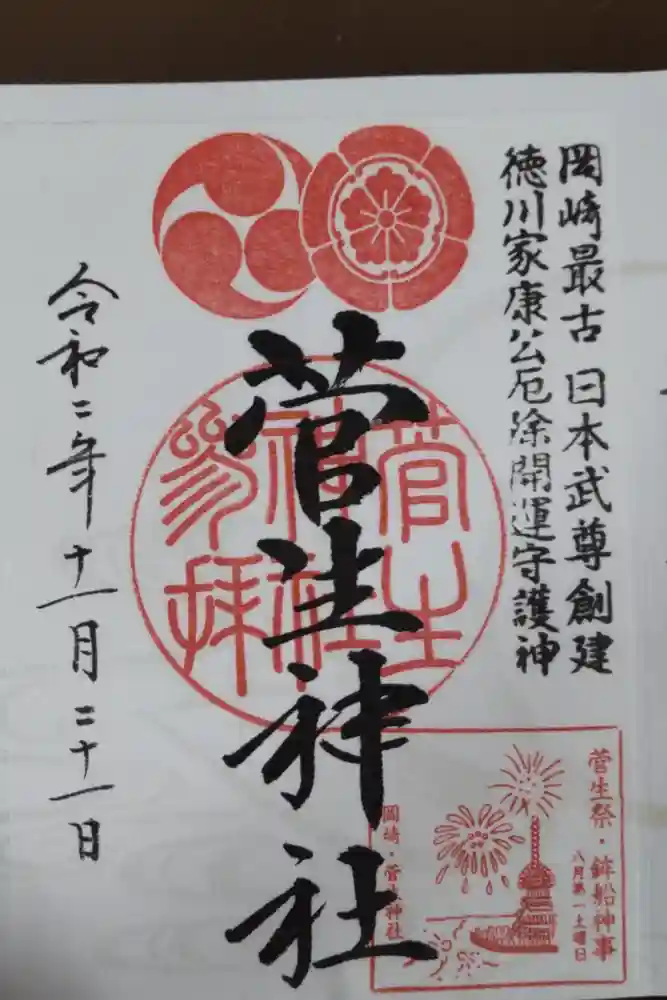 岡崎最古 日本武尊創建
徳川家康公厄除開運守護神
菅生神社
菅生
神社
参拝
菅生祭・鉾船神事
八月第一土曜日
岡崎・菅生神社
令和二年十一月二十一日